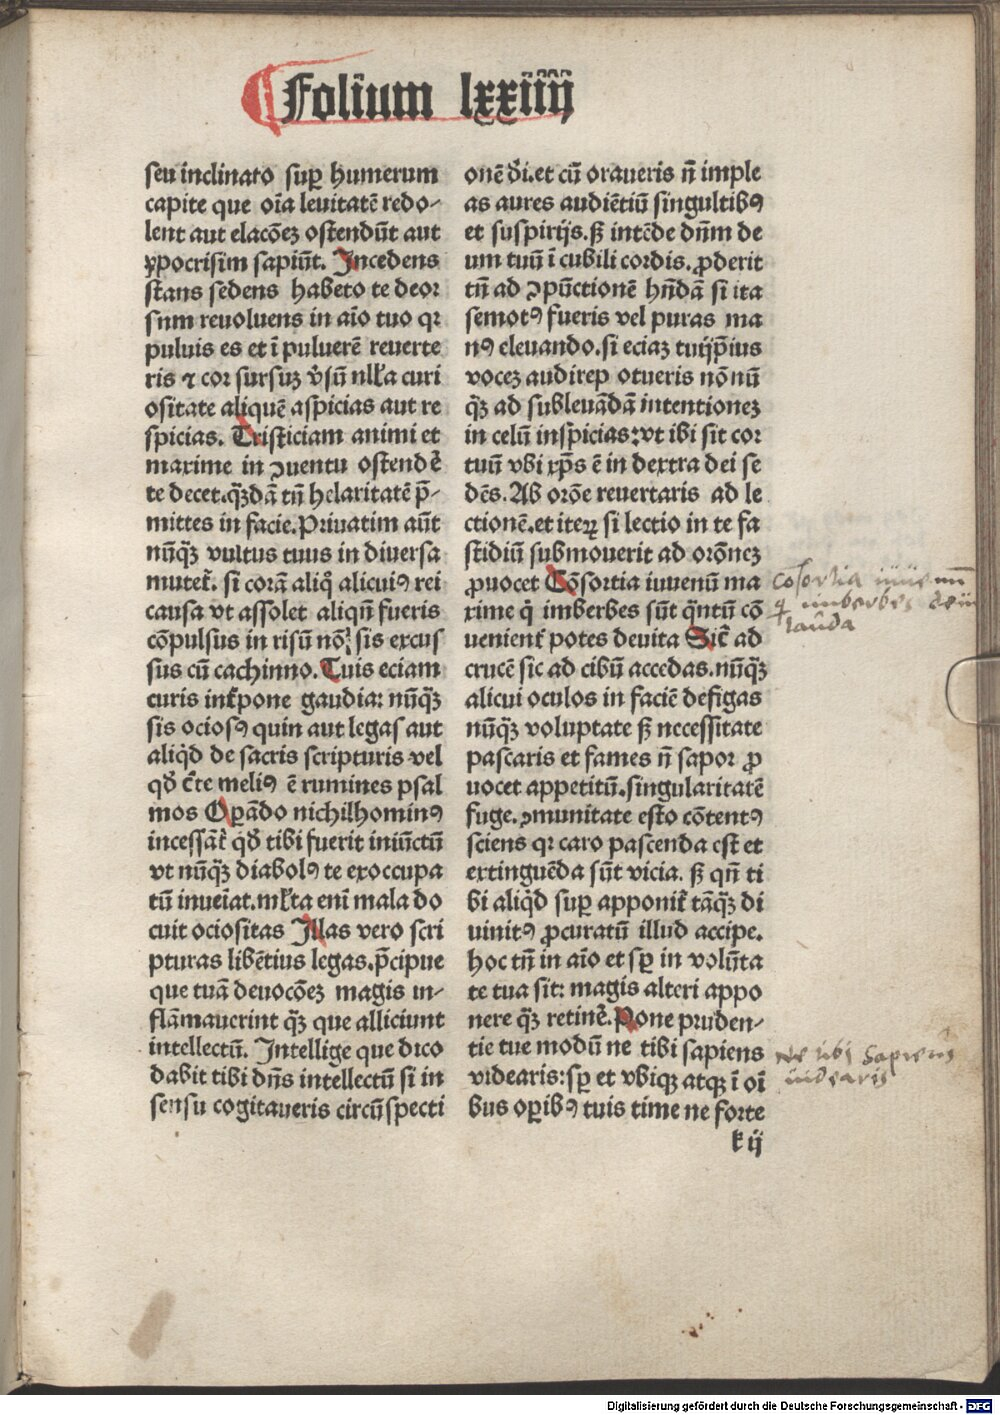 Folium lxxiiij
seu inclinato sup̱ humerum
capite que oĩa leuitatẽ redo-
lent aut elacõeꝫ ostendũt aut
ypocrisim sapiũt. Incedens
stans sedens habeto te deoꝛ
sum reuoluens in aĩo tuo qꝛ
puluis es et ĩ puluerẽ reuerte
ris ⁊ coꝛ sursuꝫ v̾sũ nll̾a curi
ositate aliquẽ aspicias aut re
spicias. Tristiciam animi et
maxime in ꝯuentu ostendẽ
te decet.q̃ꝫdã tñ helaritatẽ p̃-
mittes in facie.Priuatim aũt
nũq̃ꝫ vultus tuus in diuersa
mutet᷑. si corã aliq̊ alicuiꝰ rei
causa vt assolet aliqñ fueris
cõpulsus in risũ nõ sis excus
sus cũ cachinno. Tuis eciam
curis int̾pone gaudia: nũq̃ꝫ
sis ociosꝰ quin aut legas aut
aliq̊d de sacris scripturis vel
qđ c̾te meliꝰ ẽ rumines psal
mos Oꝑãdo nichilhominꝰ
incessãt᷑ qđ tibi fuerit iniũctũ
vt nũq̃ꝫ diabolꝰ te exoccupa
tũ inueĩat.ml̾ta enĩ mala do
cuit ociositas Illas vero scri
pturas libẽtius legas.p̃cipue
que tuã deuocõeꝫ magis in-
flãmauerint q̃ꝫ que alliciunt
intellectũ. Intellige que dico
dabit tibi dñs intellectũ si in
sensu cogitaueris circũspecti
onẽ d̾i.et cũ oraueris ñ imple
as aures audiẽtiũ singultibꝰ
et suspirijs.ꝭꝫ intẽde dñm de
um tuũ ĩ cubili cordis.ꝓderit
tñ ad ꝯpũctionẽ hñdã si ita
semotꝰ fueris vel puras ma
nꝰ eleuando.si eciaꝫ tuijp̃ius
voceꝫ audirep otueris nõnũ
q̃ꝫ ad subleuãdã intentioneꝫ
in celũ inspicias:vt ibi sit coꝛ
tuũ vbi xp̃s ẽ in dextra dei se
dẽs.Ab orõe reuertaris ad le
ctionẽ.et iteꝝ si lectio in te fa
stidiũ submouerit ad orõneꝫ
ꝓuocet Cõsortia iuuenũ ma
xime q̊ imberbes sũt q̃ntũ cõ
uenient᷑ potes deuita Sic̃ ad
crucẽ sic ad cibũ accedas.nũq̃ꝫ
alicui oculos in faciẽ defigas
nũq̃ꝫ voluptate ꝭꝫ necessitate
pascaris et fames ñ sapoꝛ ꝓ
uocet appetitũ.singularitatẽ
fuge.ꝯmunitate esto cõtentꝰ
sciens qꝛ caro pascenda est et
extinguẽda sũt vicia. ꝭꝫ qñ ti
bi aliq̊d sup̱ apponit᷑ tãq̃ꝫ di
uinitꝰ ꝓcuratũ illud accipe.
hoc tñ in aĩo et sp̱ in volũta
te tua sit: magis alteri appo
nere q̃ꝫ retinẽ.Pone pruden-
tie tue modũ ne tibi sapiens
videaris:sp̱ et vbiqꝫ atqꝫ ĩ oĩ
bus oꝑibꝰ tuis time ne forte
k ij
cõsortia iuuenũ
q̊ imberbes
ne tibi sapiens
uidearis
Digitalisierung gefördert durch die Deutsche Forschungsgemeinschaft - DFG